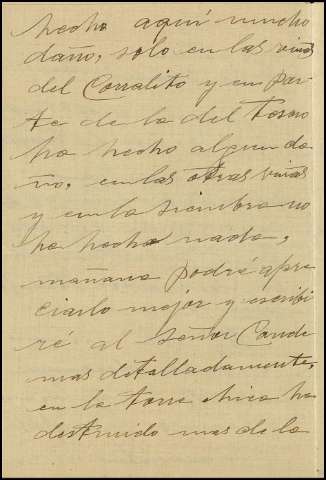 hecho aquí mucho
daño, solo en las viñas
del Corralito y en par
te de la del
ha hecho algun da
ño, en las otras viñas
y en la siembra no
ha hecho nada,
mañana podré apre
ciarlo mejor y escribi
ré al Señor Conde
mas detalladamente,
en la torre chica ha
destruido mas de la